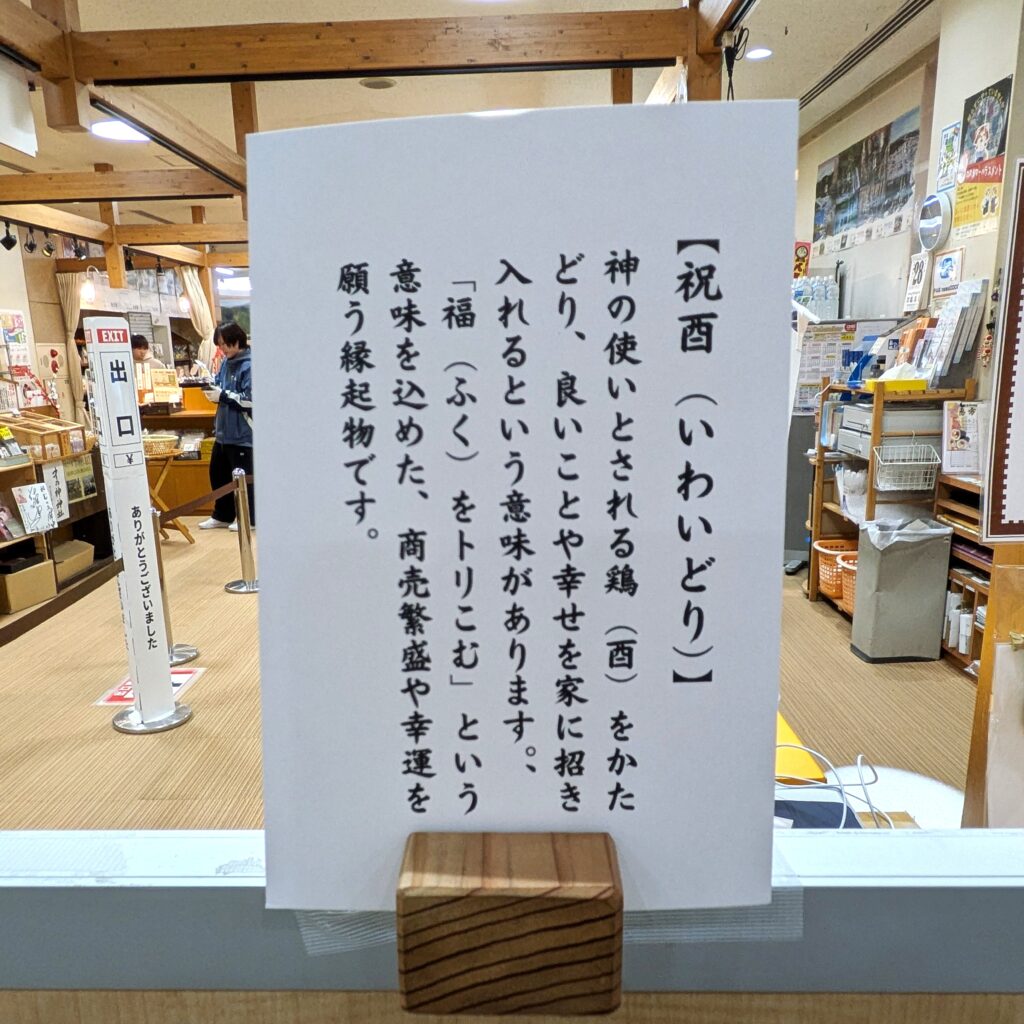 【祝酉（いわいどり）】
神の使いとされる鶏（酉）をかた
どり、良いことや幸せを家に招き
入れるという意味があります。、
「福（ふく）をトリこむ」という
意味を込めた、商売繁盛や幸運を
願う縁起物です。
EXIT
出口
¥
ありがとうございました